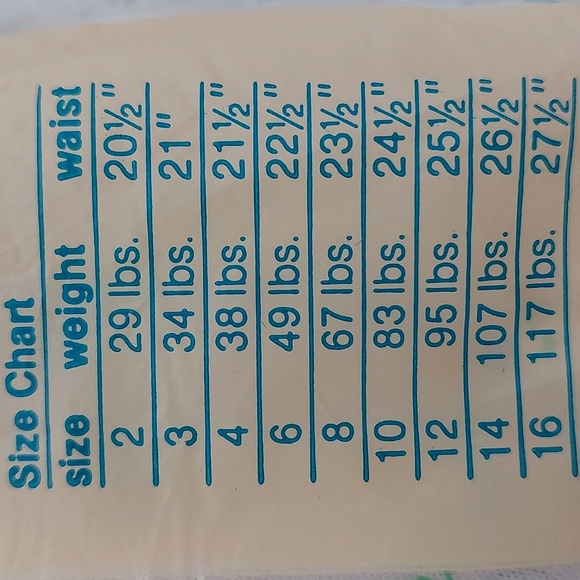 Size Chart
size weight waist
2 29 lbs. 20½"
3 34 lbs. 21"
4 38 lbs. 21½"
6 49 lbs. 22½"
8 67 lbs. 23½"
10 83 lbs. 24½"
12 95 lbs. 25½"
14 107 lbs. 26½"
16 117 lbs. 27½"